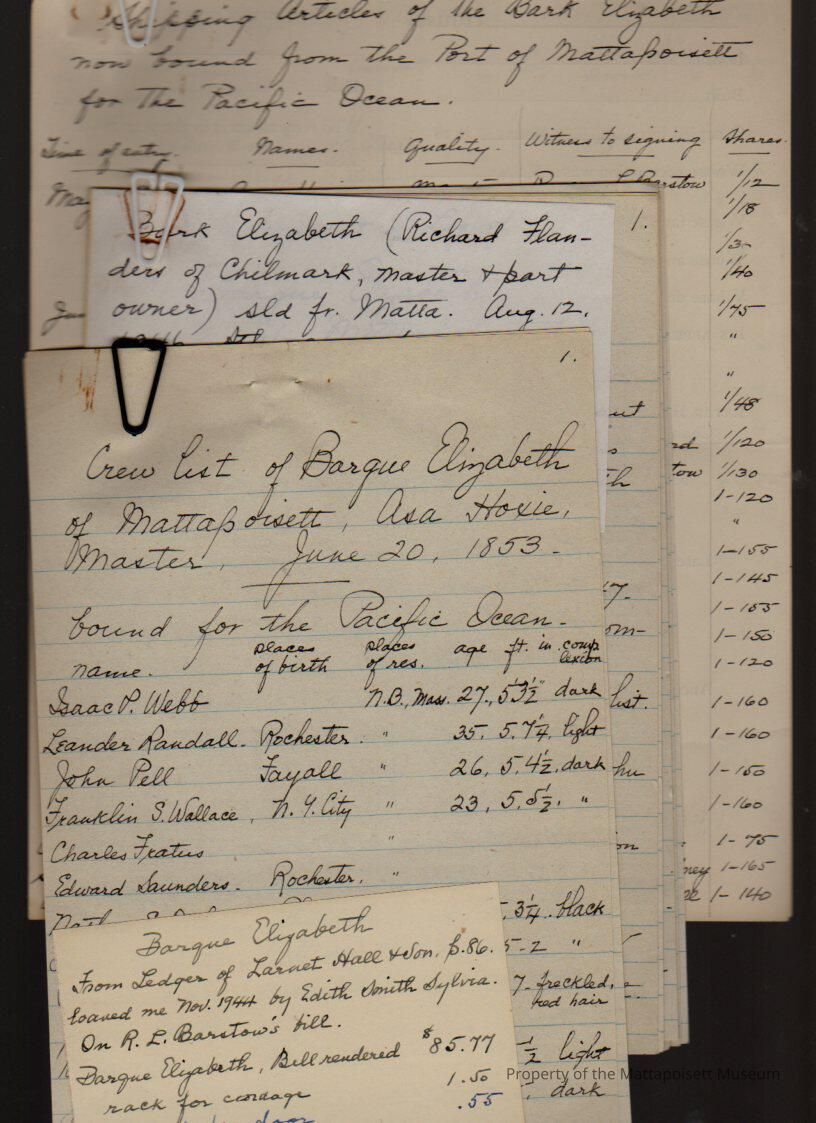 Shipping Articles of the Bark Elizabeth
now bound from the Port of Mattapoisett
for the Pacific Ocean.
Time of entry. Names. Quality. Witness to signing Shares.
Barstow 1/12
1/18
1/40
1/75
"
"
1/48
1/120
1/130
1-120
"
1-155
1-145
1-155
1-150
1-120
1-160
1-160
1-150
1-160
1-75
1-165
1-140
1.
Bark Elizabeth (Richard Flan-
ders of Chilmark, master & part
owner) sld fr. Matta. Aug. 12,
1.
Crew list of Barque Elizabeth
of Mattapoisett, Asa Hoxie,
Master, June 20, 1853-
bound for the Pacific Ocean-
name. places of birth places of res. age ft. in. comp lexion
Isaac P. Webb N.B., Mass. 27, 5'3½" dark
Leander Randall. Rochester. " 35, 5.7¼, light
John Pell Fayall " 26, 5.4½, dark
Franklin S. Wallace, N.Y. City " 23, 5.5½, "
Charles Fratus "
Edward Saunders. Rochester, "
3¼. black
5-2 "
7- freckled, red hair
½ light
dark
Barque Elizabeth
From Ledger of Larnet Hall & Son, p.86.
loaned me Nov. 1944 by Edith Smith Sylvia.
On R. L. Barstow's bill.
Barque Elizabeth, Bill rendered $85.77
rack for cordage 1.50
.55
Property of the Mattapoisett Museum